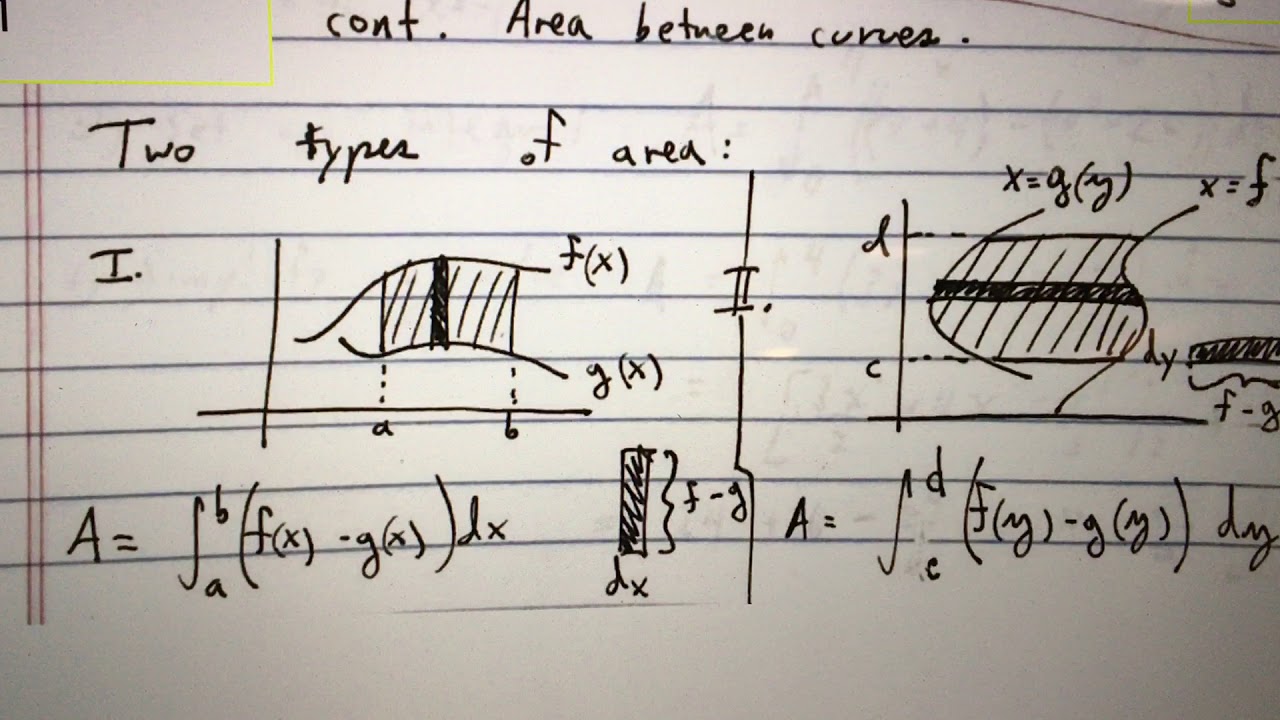 cont. Area between curves.
Two types of area:
I.
f(x)
g(x)
a
b
A = ∫_a^b (f(x) - g(x)) dx
} f - g
dx
II.
x = g(y)
x = f
d
c
dy
f - g
A = ∫_c^d (f(y) - g(y)) dy